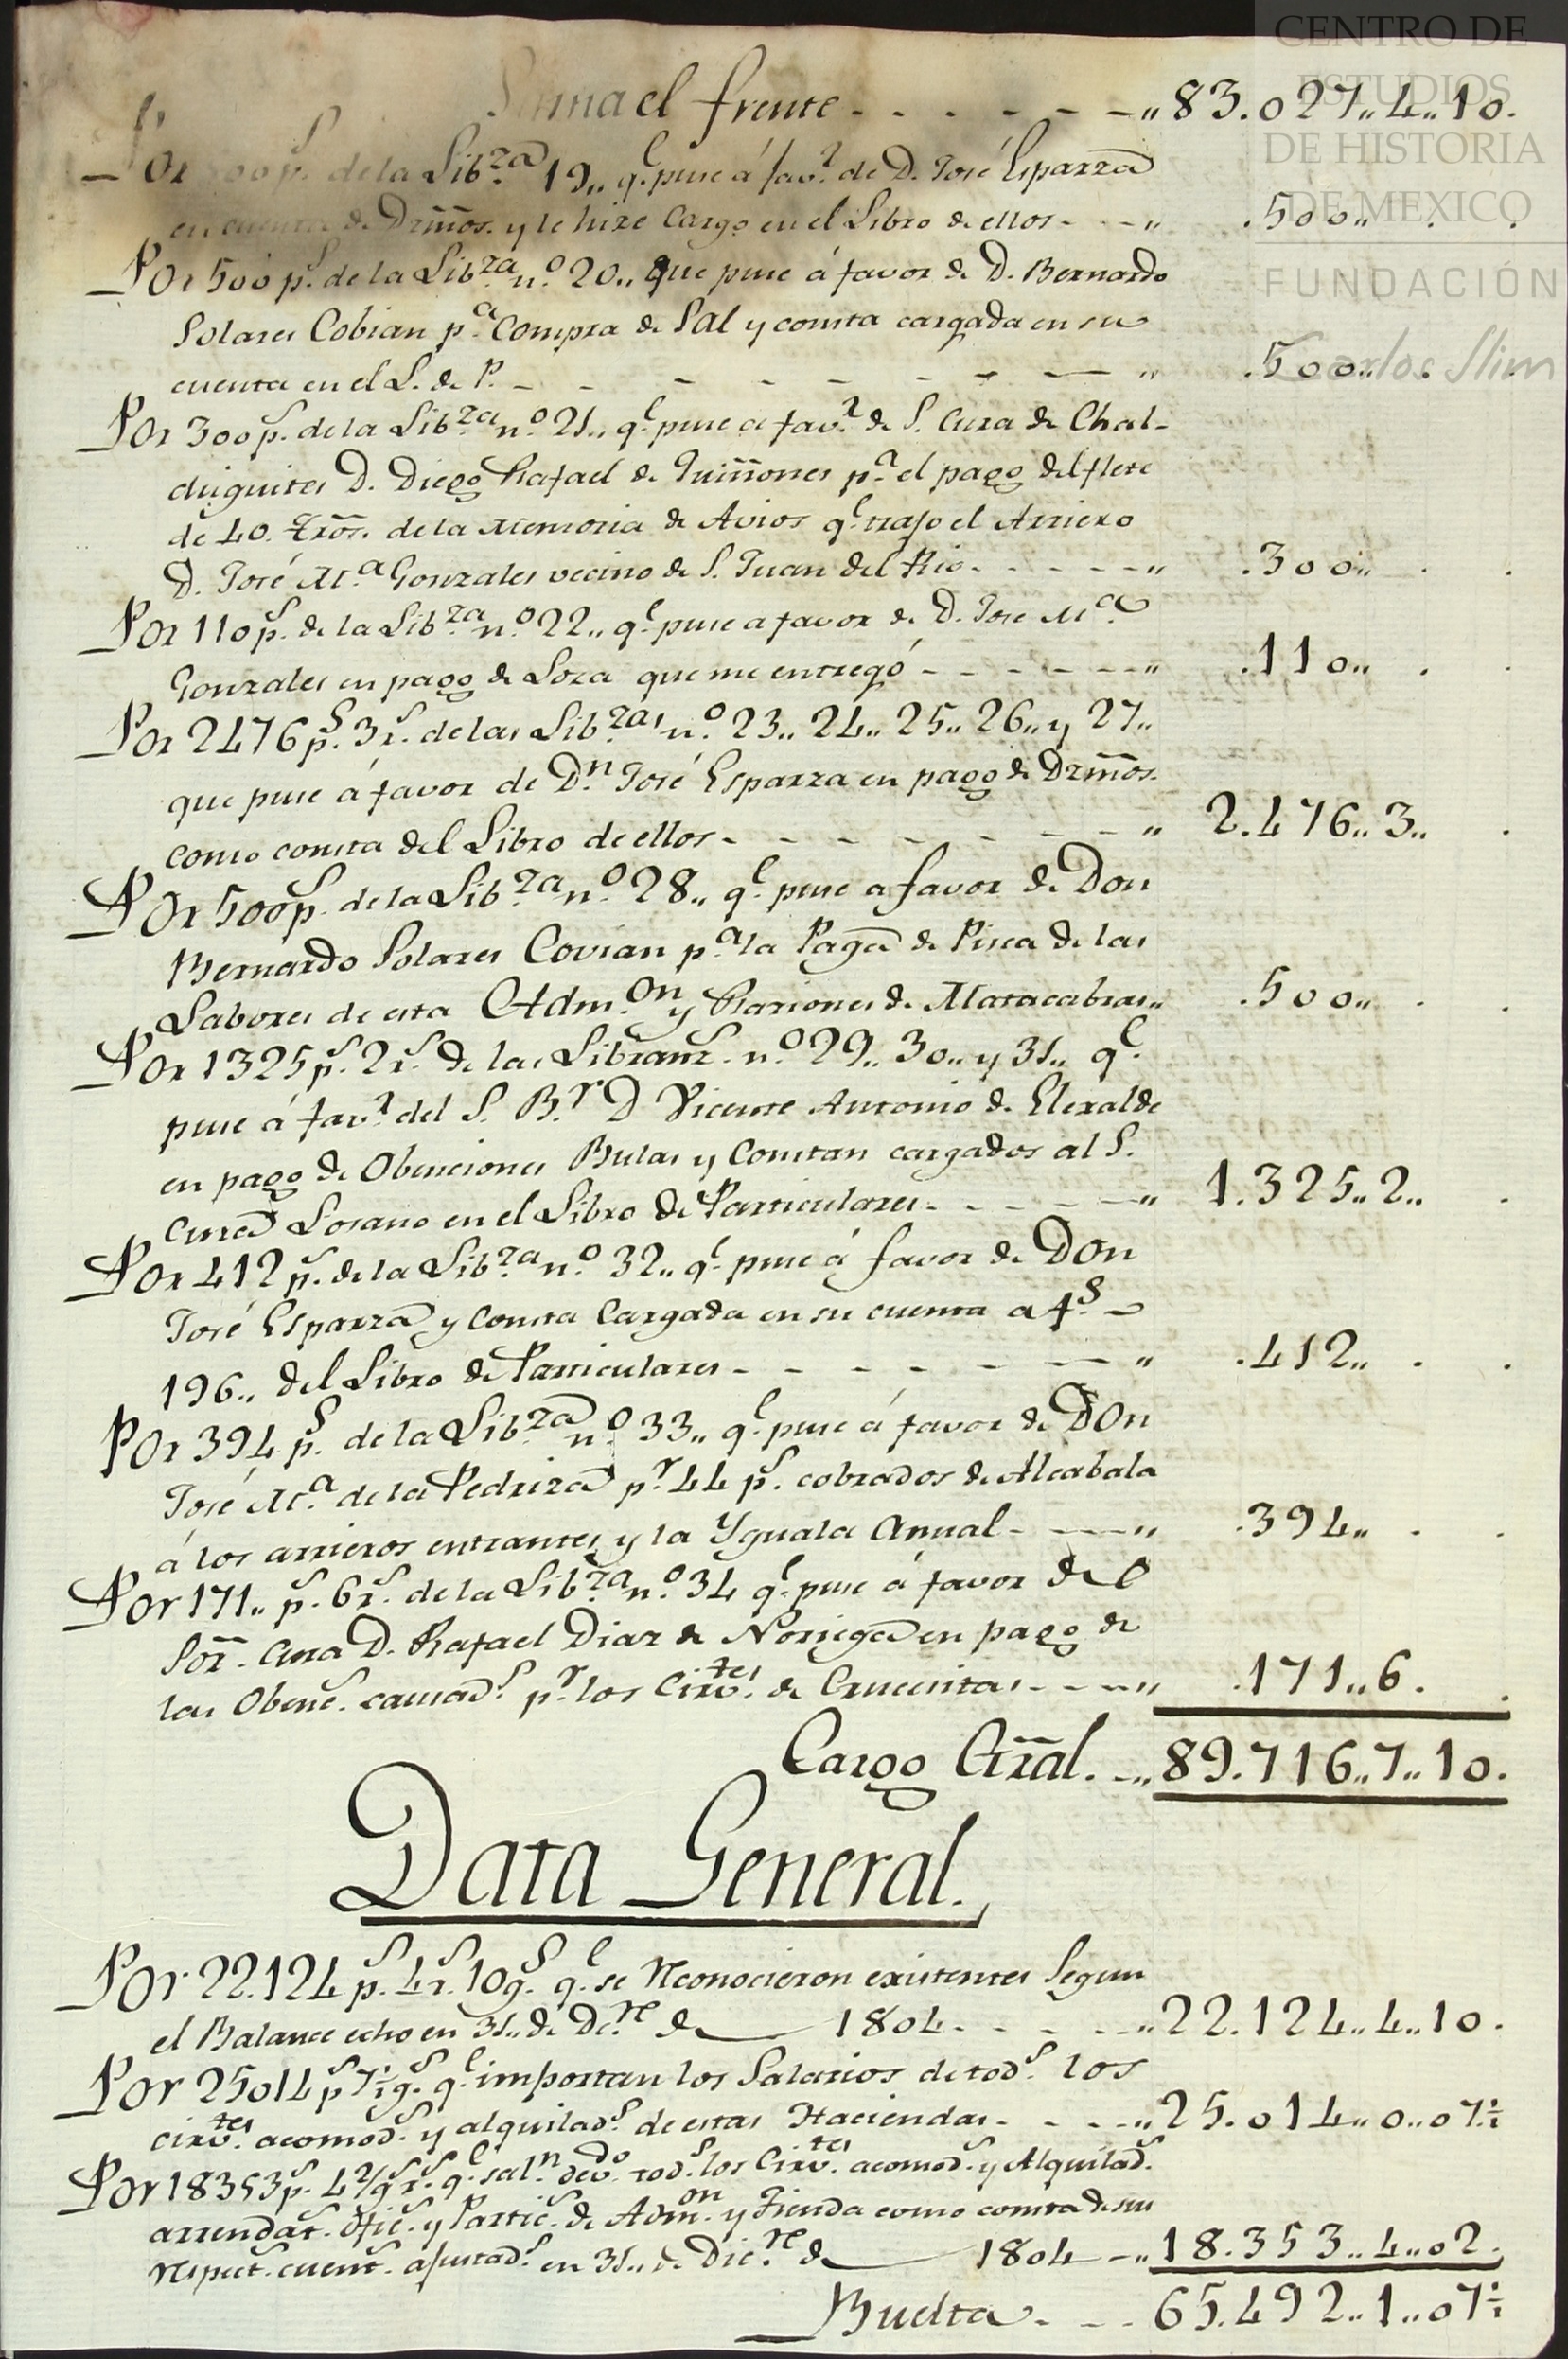 CENTRO DE
ESTUDIOS
DE HISTORIA
DE MEXICO
FUNDACIÓN
Carlos Slim
Suma el frente - - - - - - „ 83.027„4„10.
Por 500 p.s de la Lib.za 19„ q.e puse á fav.r de D. José Esparza
en cuenta de Dzm̃os. y le hize Cargo en el Libro de ellos - - - „ .500„ . .
Por 500 p.s de la Lib.za n.o 20„ que puse á favor de D. Bernardo
Solares Cobian p.a Compra de Sal y consta cargada en su
cuenta en el L. de P. - - - - - - - - „ .500„ . .
Por 300 p.s de la Lib.za n.o 21„ q.e puse a fav.r de S. Cura de Chal-
chiguites D. Diego Rafael de Quiñones p.a el pago del flete
de 40 trõs. de la Memoria de Avios q.e trajo el Arriero
D. José M.a Gonzales vecino de S. Juan del Rio - - - - - „ .300„ . .
Por 110 p.s de la Lib.za n.o 22„ q.e puse a favor de D. Jose M.a
Gonzales en pago de Loza que me entregó - - - - - - „ .110„ . .
Por 2476 p.s 3 r.s de las Lib.zas n.o 23„ 24„ 25„ 26„ y 27„
que puse á favor de D.n José Esparza en pago de Dzm̃os.
como consta del Libro de ellos - - - - - - - - „ 2.476„3„ .
Por 500 p.s de la Lib.za n.o 28„ q.e puse a favor de Don
Bernardo Solares Covian p.a la Paga de Pisca de las
Labores de esta Adm.on y Raciones de Matacabras„ .500„ . .
Por 1325 p.s 2 r.s de las Libranz.s n.o 29„ 30„ y 31„ q.e
puse á fav.r del S. B.r D Vicente Antonio de Elexalde
en pago de Obenciones Bulas y Constan cargados al S.
Cura Losano en el Libro de Particulares - - - - „ 1.325„2„ .
Por 412 p.s de la Lib.za n.o 32„ q.e puse á favor de Don
José Esparza y Consta Cargada en su cuenta a f.s
196„ del Libro de Particulares - - - - - - - „ .412„ . .
Por 394 p.s de la Lib.za n.o 33„ q.e puse á favor de Don
José M.a de la Pedriza p.r 44 p.s cobrados de Alcabala
á los arrieros entrantes y la Yguala Anual - - - - „ .394„ . .
Por 171„ p.s 6 r.s de la Lib.za n.o 34 q.e puse á favor del
Sor̃. Cura D. Rafael Diaz de Noriega en pago de
las Obenc.s causad.s p.r los Cirv.tes de Crucesitas - - - „ .171„6. .
Cargo Gr̃al. - „ 89.716„7„10.
Data General.
Por 22.124 p.s 4 r.s 10 g.s q.e se Reconocieron existentes Segun
el Balance echo en 31„ de Dc.re de 1804 - - - - - „ 22.124„4„10.
Por 25014 p.s 7½ g.s q.e importan los Salarios de tod.s los
cirv.tes acomod.s y alquilad.s de estas Haciendas - - - - „ 25.014„0„07½
Por 18353 p.s 4 2/g r.s q.e sal.n dev.do tod.s los Cirv.tes acomod.s y Alquilad.s
arrendat.s Ofic.s y Partic.s de Adm.on y Tienda como consta de sus
Respect.s cuent.s ajustad.s en 31„ de Dic.re de 1804 - „ 18.353„4„02.
Buelta - - - 65.492„1„07½